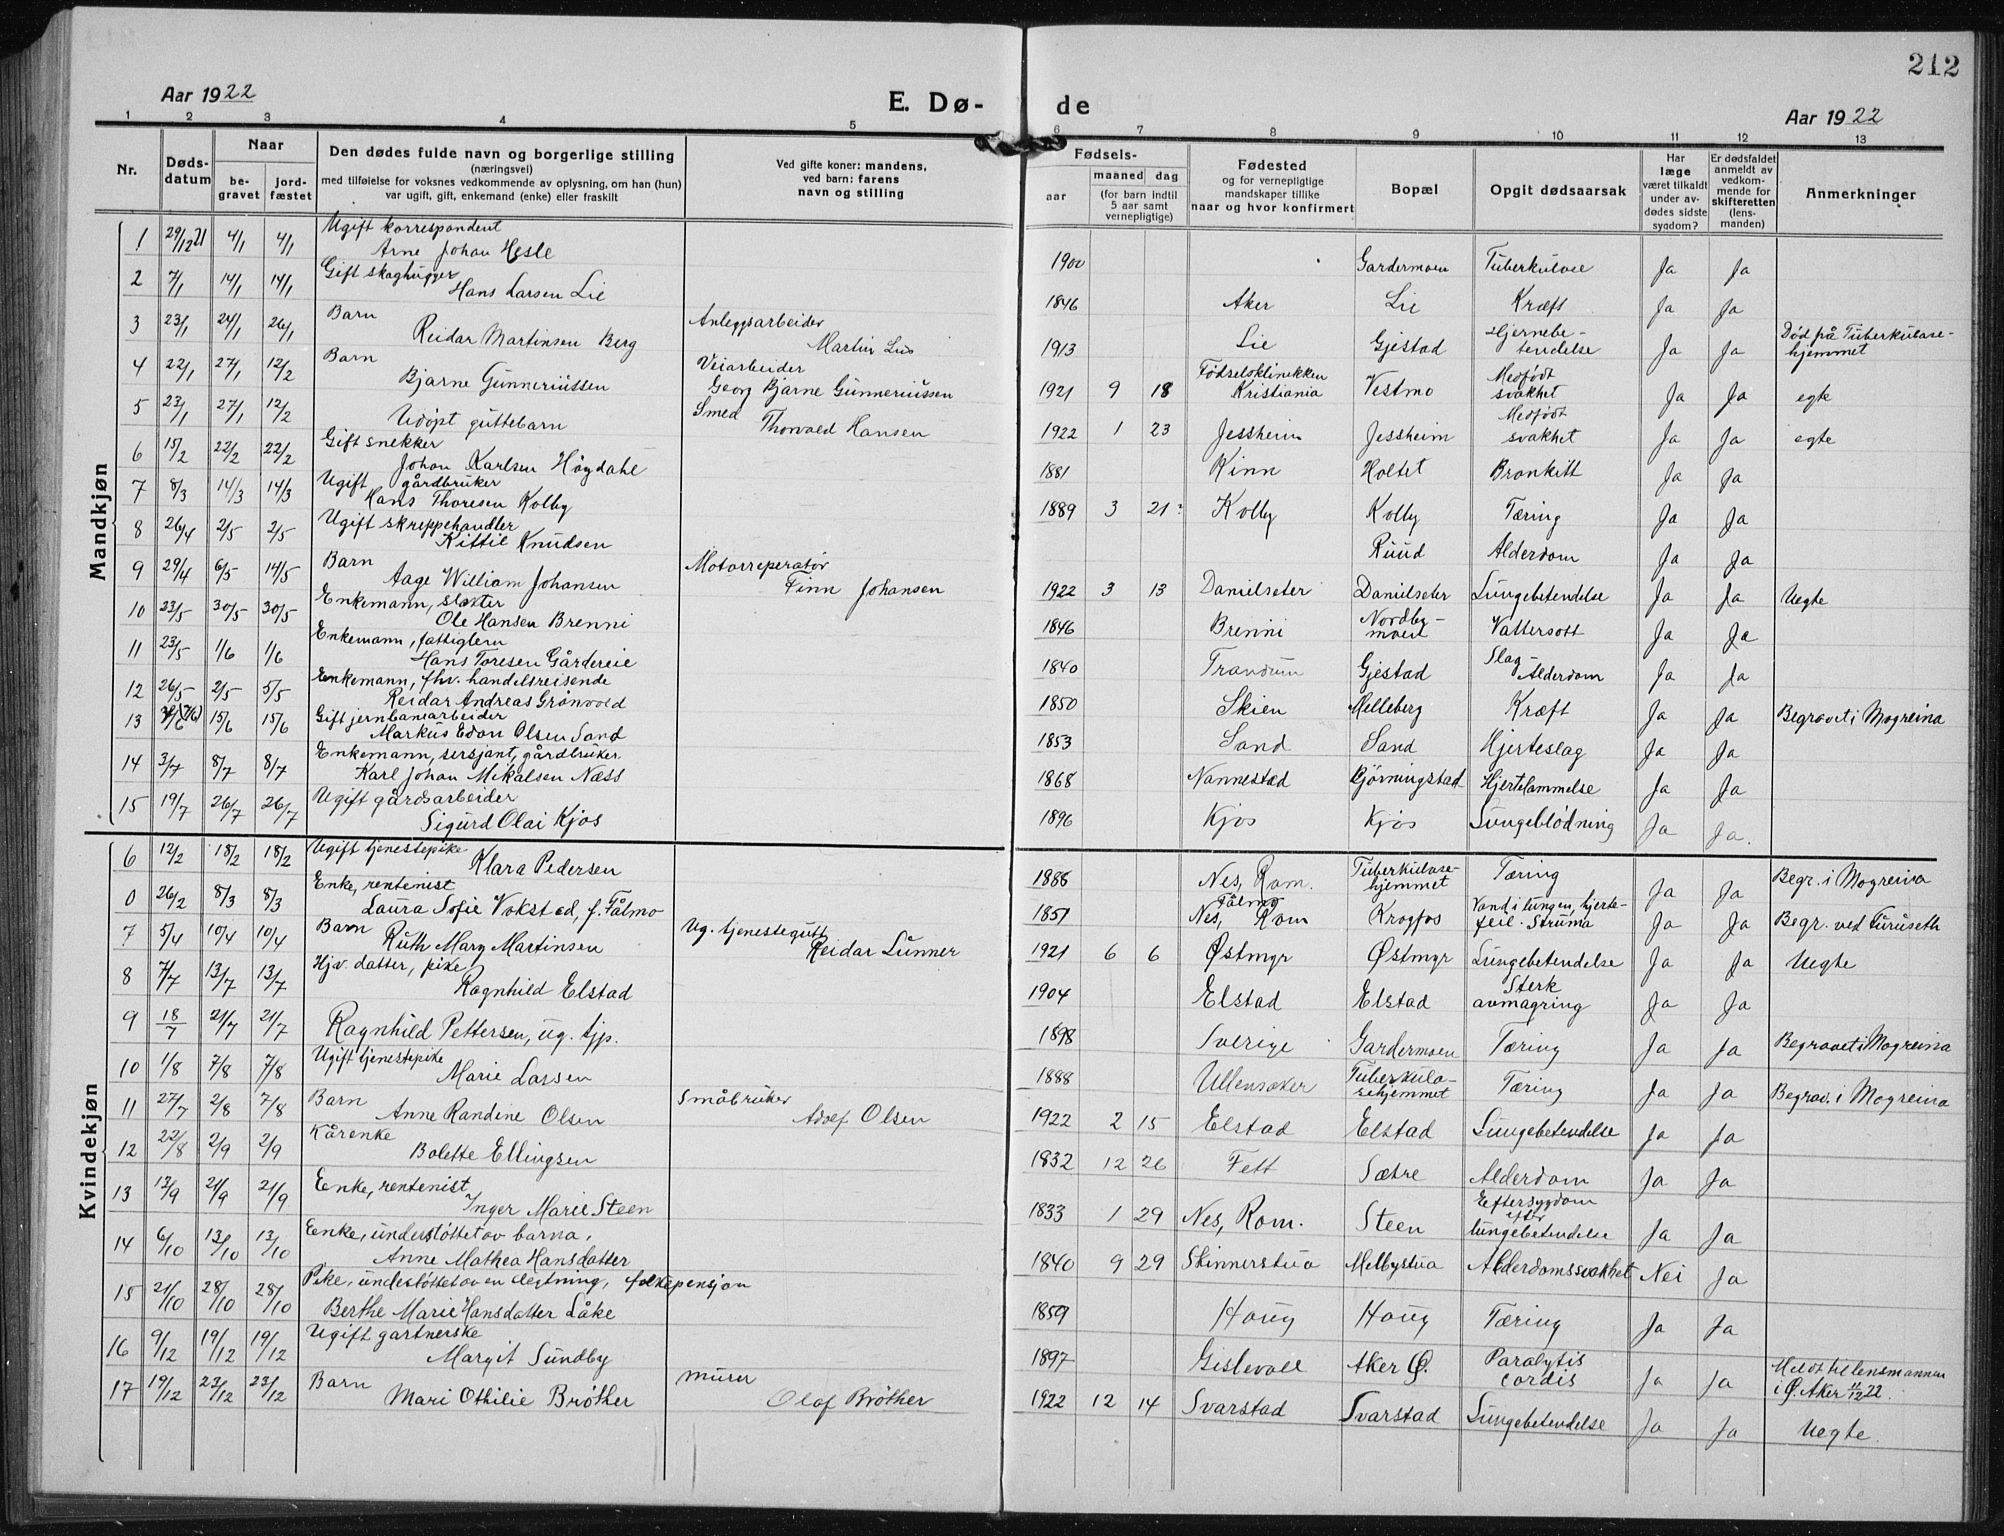 212
Aar 1922
E. Dø- de
Aar 1922
1 2 3 4 5 6 7 8 9 10 11 12 13
Nr.
Døds-
datum
Naar
be-
gravet
jord-
fæstet
Den dødes fulde navn og borgerlige stilling
(næringsvei)
med tilføielse for voksnes vedkommende av oplysning, om han (hun)
var ugift, gift, enkemand (enke) eller fraskilt
Ved gifte koner: mandens,
ved barn: farens
navn og stilling
Fødsels-
aar
maaned dag
(for barn indtil
5 aar samt
vernepligtige)
Fødested
og for vernepligtige
mandskaper tillike
naar og hvor konfirmert
Bopæl
Opgit dødsaarsak
Har
læge
været tilkaldt
under av-
dødes sidste
sygdom?
Er dødsfaldet
anmeldt av
vedkom-
mende for
skifteretten
(lens-
manden)
Anmerkninger
Mandkjøn
1 29/12 21 4/1 4/1 Ugift korrespondent
Arne Johan Hesle
1900 Gardermoen Tuberkulose Ja Ja
2 7/1 14/1 14/1 Gift skoghugger
Hans Larsen Lie
1846 Aker Lie Kræft Ja Ja
3 23/1 24/1 26/1 Barn
Reidar Martinsen Berg
Anleggsarbeider
Martin
1913 Lie Gjestad Hjernebe-
tendelse Ja Ja Død på Tuberkulose-
hjemmet
4 22/1 27/1 12/2 Barn
Bjarne Gunneriussen
Veiarbeider
Georg Bjarne Gunneriussen
1921 9 18 Fødselsklinekken
Kristiania Vestmo Medfødt
svakhet Ja Ja egte
5 23/1 27/1 12/2 Udøpt guttebarn
Smed
Thorvald Hansen
1922 1 23 Jessheim Jessheim Medfødt
svakhet Ja Ja egte
6 15/2 22/2 22/2 Gift snekker
Johan Karlsen Høgdahl
1881 Kinn Holtet Bronkitt Ja Ja
7 8/3 14/3 14/3 Ugift gårdbruker
Hans Thoresen Kolby
1889 3 21 Kolby Kolby Tæring Ja Ja
8 26/4 2/5 2/5 Ugift skreppehandler
Kittil Knudsen
Ruud Alderdom Ja Ja
9 29/4 6/5 14/5 Barn
Aage William Johansen
Motorreperatør
Finn Johansen
1922 3 13 Danielseter Danielseter Lungebetendelse Ja Ja Uegte
10 23/5 30/5 30/5 Enkemann, slakter
Ole Hansen Brenni
1846 Brenni Nordby-
moen Vattersott Ja Ja
11 23/5 1/6 1/6 Enkemann, fattiglem
Hans Toresen Gårdereie
1840 Trandum Gjestad Slag-
Alderdom Ja Ja
12 26/5 2/5 5/5 Enkemann, fhv. handelsreisende
Reidar Andreas Grønvold
1850 Skien Melleberg Kræft Ja Ja Begravet i Mogreina
13 15/6 15/6 Gift jernbanearbeider
Markus Edon Olsen Sand
1853 Sand Sand Hjerteslag Ja Ja
14 3/7 8/7 8/7 Enkemann, sersjant, gårdbruker
Karl Johan Mikalsen Næss
1868 Nannestad Bjørningstad Hjertelammelse Ja Ja
15 19/7 26/7 26/7 Ugift gårdsarbeider
Sigurd Olai Kjos
1896 Kjos Kjos Lungeblødning Ja Ja.
Kvindekjøn
6 12/2 18/2 18/2 Ugift tjenestepike
Klara Pedersen
1886 Nes, Rom. Tuberkulose-
hjemmet Tæring Ja Ja Begr. i Mogreina
0 26/2 8/3 8/3 Enke, rentenist
Laura Sofie Vokstad, f. Fålmo
1851 Fålmo
Nes, Rom Krogfos Vand i lungen, hjerte-
feil. Struma Ja Ja Begr. ved Furuseth
7 5/4 10/4 10/4 Barn
Ruth Mary Martinsen
Ug. tjenestegutt
Reidar Lunner
1921 6 6 Østmyr Østmyr Lungebetendelse Ja Ja Uegte
8 7/7 13/7 13/7 Hjv. datter, pike
Ragnhild Elstad
1904 Elstad Elstad Sterk
avmagring Ja Ja
9 18/7 21/7 21/7 Ragnhild Pettersen, ug. tjp.
1898 Sverige Gardermoen Tæring Ja Ja Begravet i Mogreina
10 1/8 7/8 7/8 Ugift tjenestepike
Marie Larsen
1888 Ullensaker Tuberkulo-
sehjemmet Tæring Ja Ja Begrav. i Mogreina
11 27/7 2/8 7/8 Barn
Anne Randine Olsen
Småbruker
Adolf Olsen
1922 2 15 Elstad Elstad Lungebetendelse Ja Ja
12 22/8 2/9 2/9 Kårenke
Bolette Ellingsen
1832 12 26 Fett Sætre Alderdom Ja Ja
13 13/9 21/9 21/9 Enke, rentenist
Inger Marie Steen
1833 1 29 Nes, Rom. Steen Eftersygdom
efter
lungebetendelse Ja Ja
14 6/10 13/10 13/10 Enke, understøttet av barna,
Anne Mathea Hansdatter
1840 9 29 Skinnerstua Melbystua Alderdomssvakhet Nei Ja
15 21/10 28/10 28/10 Pike, undestøttet av en slegtning, folkepensjon
Berthe Marie Hansdatter Låke
1859 Houg Houg Tæring Ja Ja
16 9/12 19/12 19/12 Ugift gartnerske
Margit Sundby
1897 Gislevoll Aker Ø. Paralytis
cordis Ja Ja Meldt til lensmannen
i Ø. Aker 11/12 22.
17 19/12 23/12 23/12 Barn
Mari Othilie Brøther
murer
Olaf Brøther
1922 12 14 Svarstad Svarstad Lungebetendelse Ja Ja Uegte.